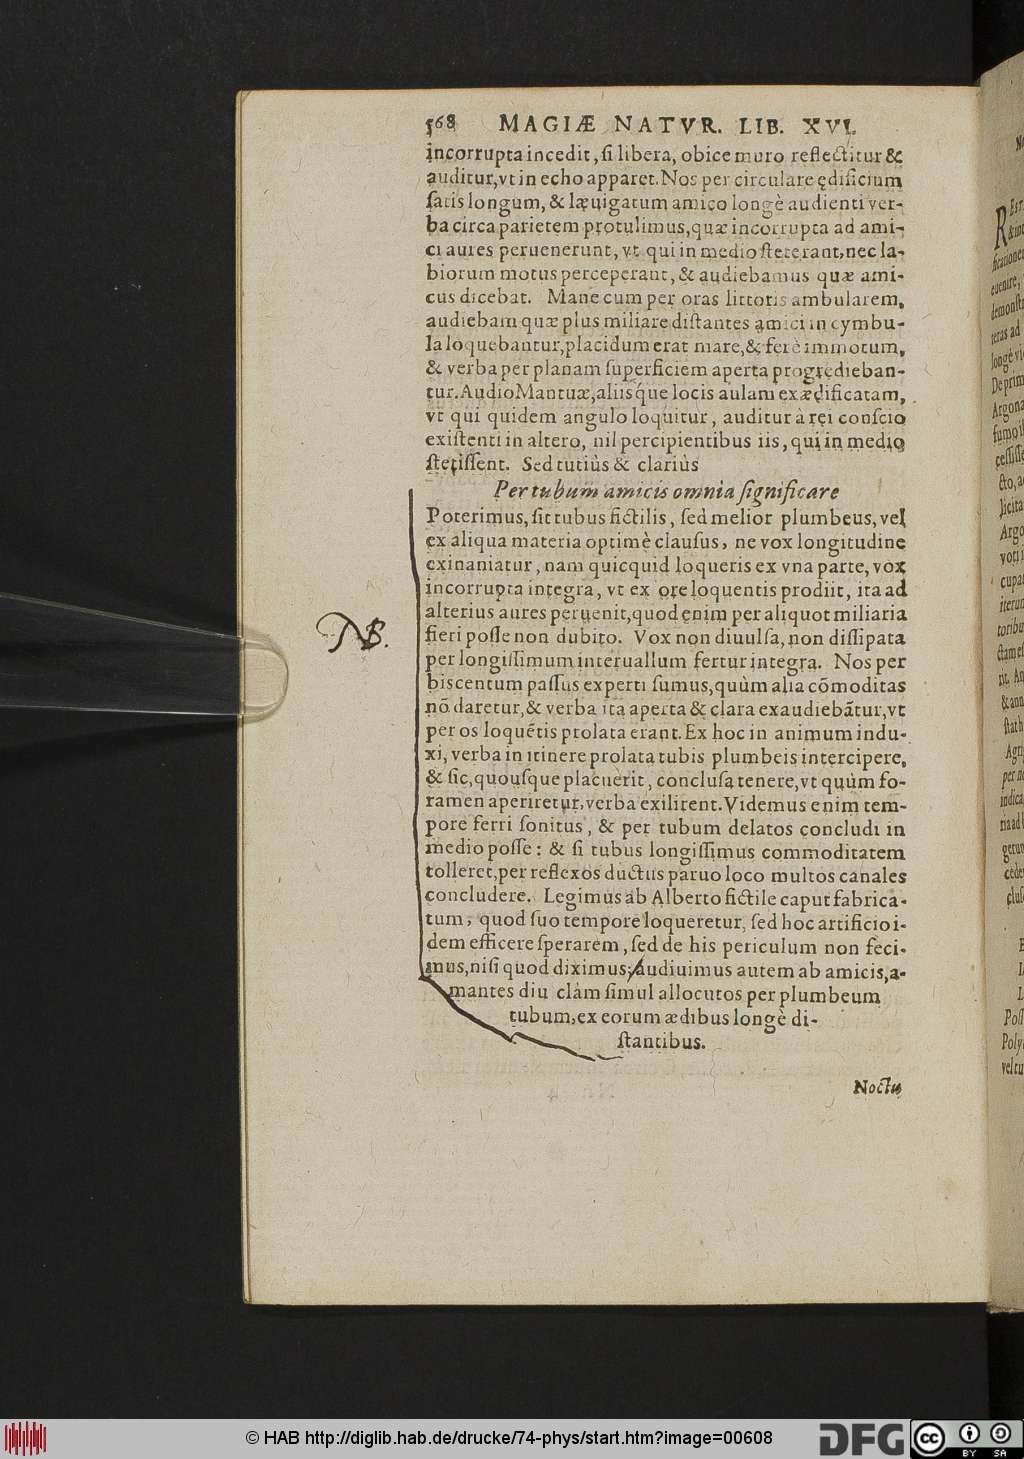 568 MAGIÆ NATVR. LIB. XVI.
incorrupta incedit, ſi libera, obice muro reflectitur &
auditur, vt in echo apparet. Nos per circulare ędificium
ſatis longum, & lęuigatum amico longè audienti ver-
ba circa parietem protulimus, quæ incorrupta ad ami-
ci aures peruenerunt, vt qui in medio ſteterant, nec la-
biorum motus perceperant, & audiebamus quæ ami-
cus dicebat. Mane cum per oras littoris ambularem,
audiebam quæ plus miliare diſtantes amici in cymbu-
la loquebantur, placidum erat mare, & ferè immotum,
& verba per planam ſuperficiem aperta progredieban-
tur. Audio Mantuæ, aliisq́ue locis aulam exædificatam,
vt qui quidem angulo loquitur, auditur à rei conſcio
exiſtenti in altero, nil percipientibus iis, qui in medio
ſtetiſſent. Sed tutiùs & clariùs
Per tubum amicis omnia ſignificare
Poterimus, ſit tubus fictilis, ſed melior plumbeus, vel
ex aliqua materia optimè clauſus, ne vox longitudine
exinaniatur, nam quicquid loqueris ex vna parte, vox
incorrupta integra, vt ex ore loquentis prodiit, ita ad
alterius aures peruenit, quod enim per aliquot miliaria
NB.
fieri poſſe non dubito. Vox non diuulſa, non diſſipata
per longiſſimum interuallum fertur integra. Nos per
biscentum paſſus experti ſumus, quùm alia cōmoditas
nō daretur, & verba ita aperta & clara exaudiebātur, vt
per os loquētis prolata erant. Ex hoc in animum indu-
xi, verba in itinere prolata tubis plumbeis intercipere,
& ſic, quouſque placuerit, concluſa tenere, vt quùm fo-
ramen aperiretur, verba exilirent. Videmus enim tem-
pore ferri ſonitus, & per tubum delatos concludi in
medio poſſe: & ſi tubus longiſſimus commoditatem
tolleret, per reflexos ductus paruo loco multos canales
concludere. Legimus ab Alberto fictile caput fabrica-
tum, quod ſuo tempore loqueretur, ſed hoc artificio i-
dem efficere ſperarem, ſed de his periculum non feci-
mus, niſi quod diximus; audiuimus autem ab amicis, a-
mantes diu clàm ſimul allocutos per plumbeum
tubum, ex eorum ædibus longè di-
ſtantibus.
Noctu
© HAB http://diglib.hab.de/drucke/74-phys/start.htm?image=00608
DFG
cc BY SA